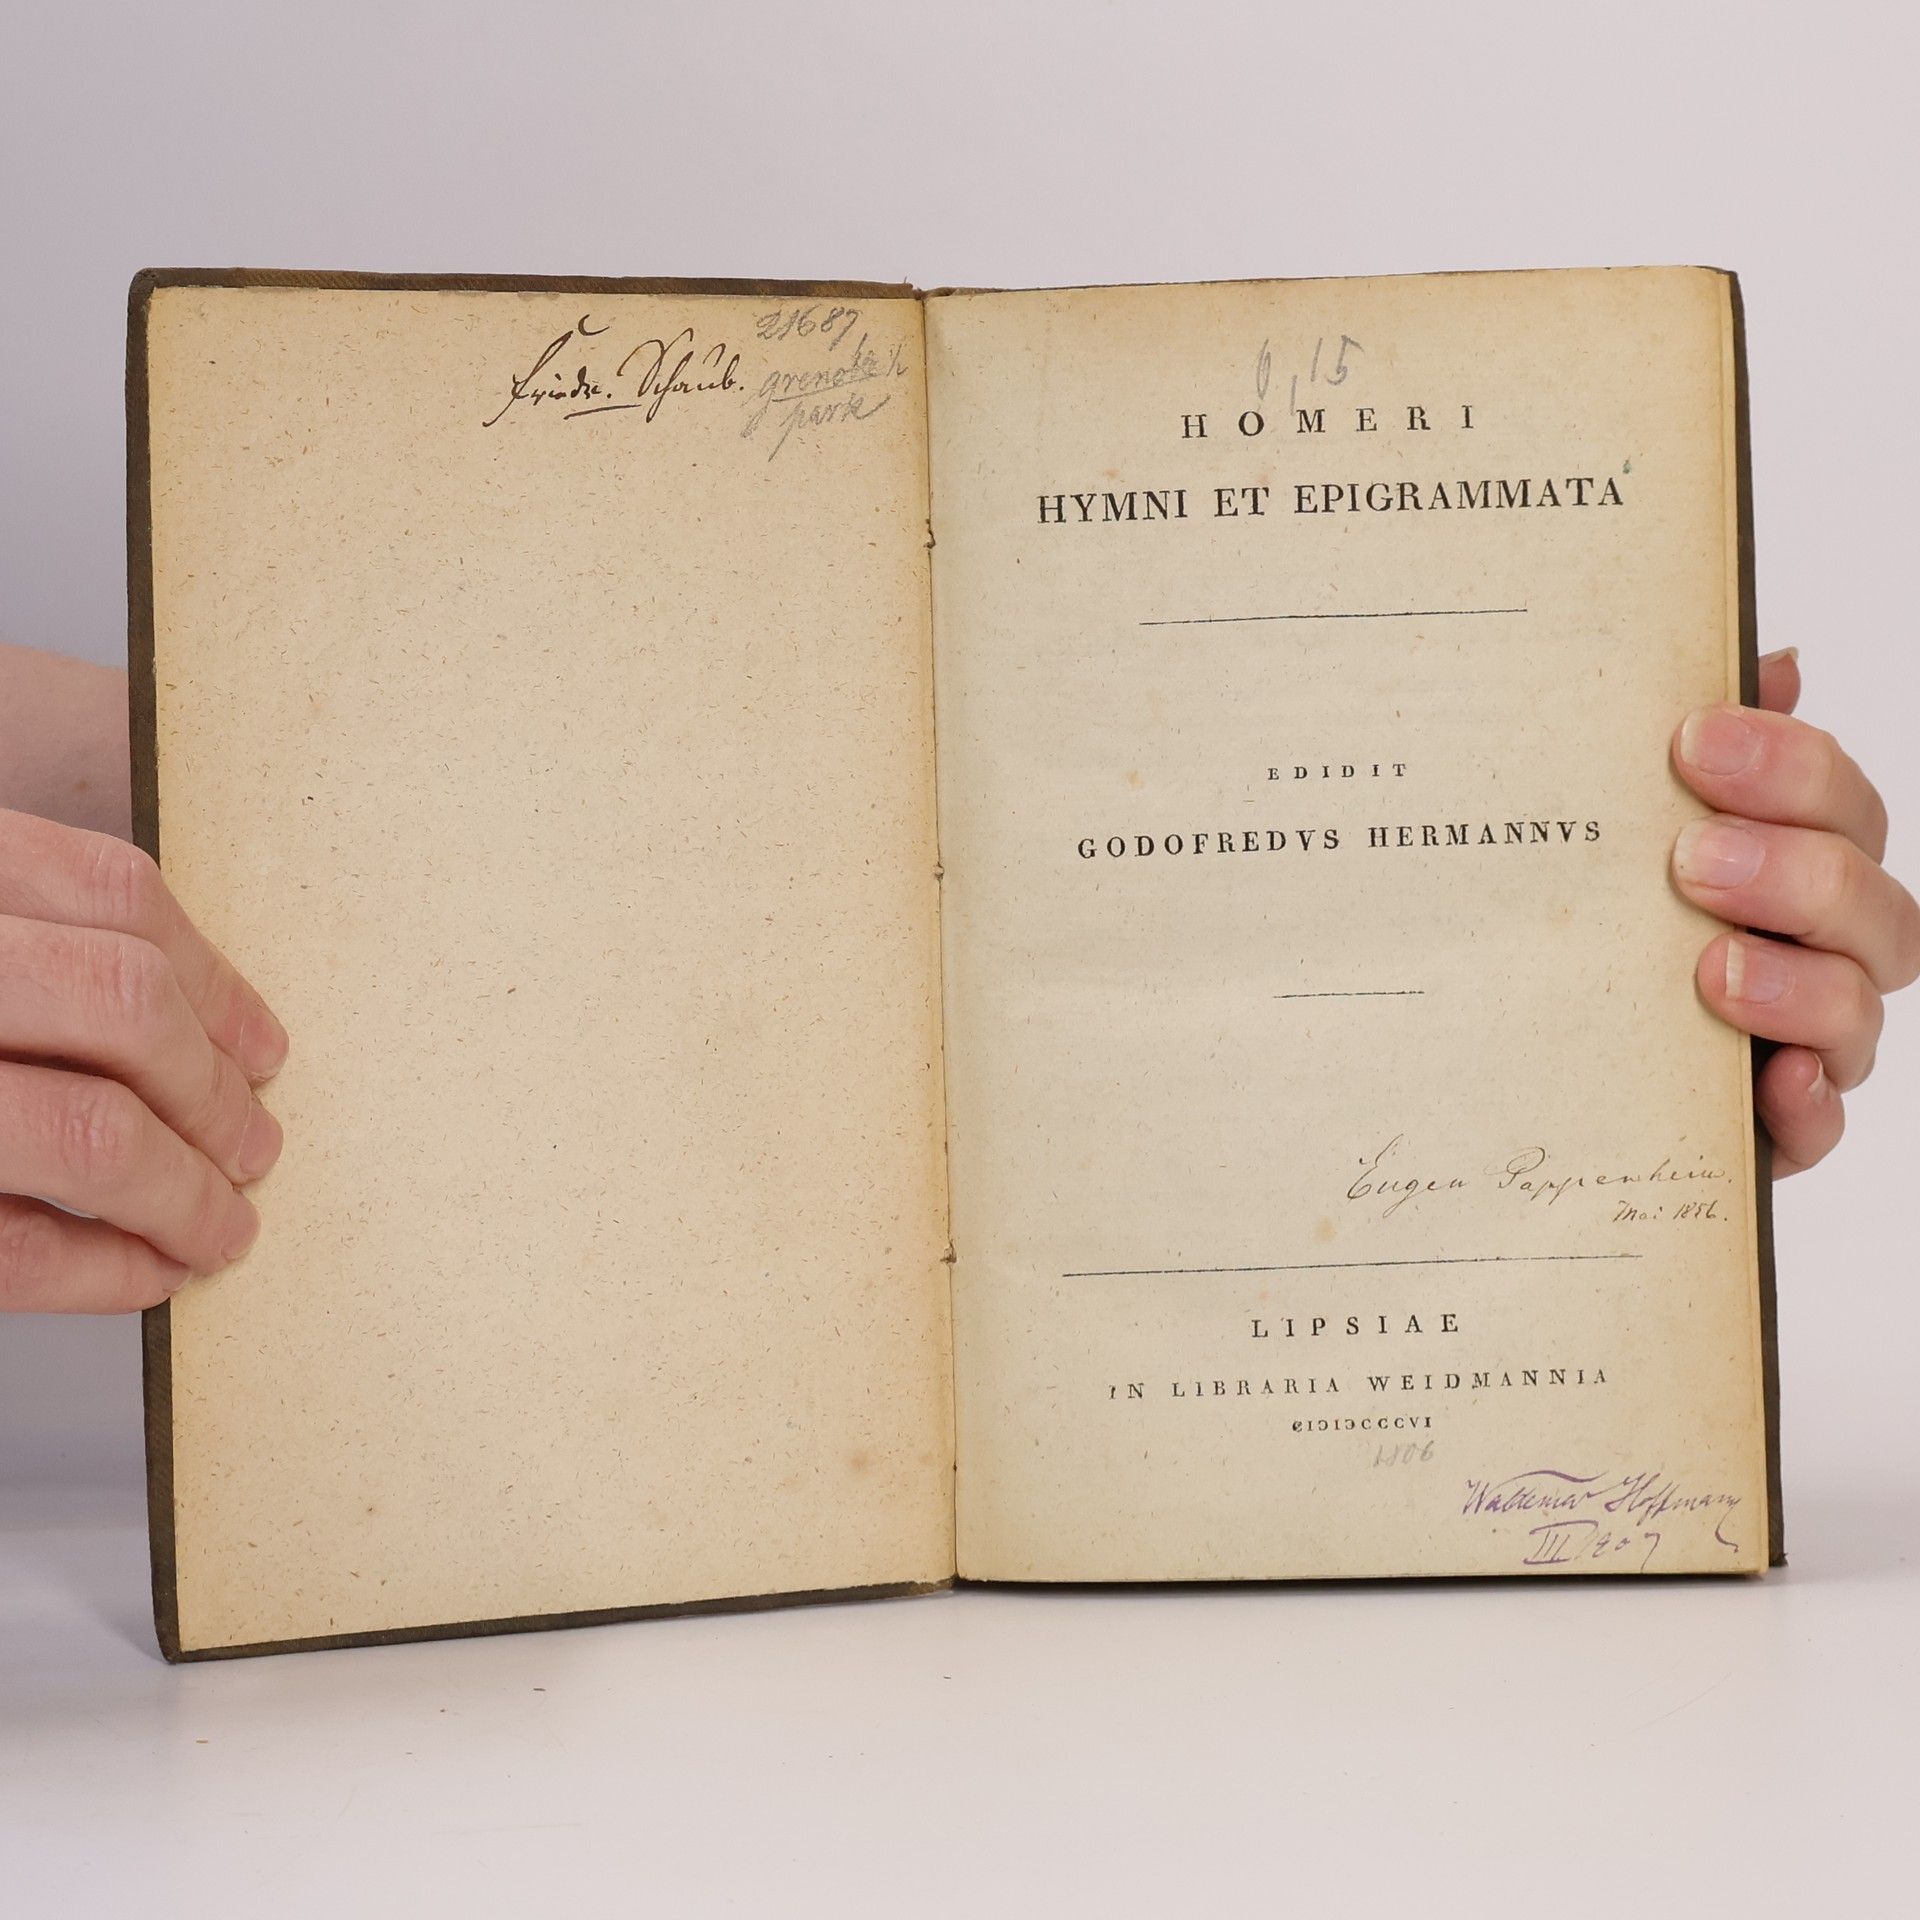 Friedr. Schaub.
21687
park
0,15
HOMERI
HYMNI ET EPIGRAMMATA
EDIDIT
GODOFREDVS HERMANNVS
Eugen Pappenheim.
Mai 1856.
LIPSIAE
IN LIBRARIA WEIDMANNIA
CIƆIƆCCCVI
1806
Waldemar Hoffmann
III 1907